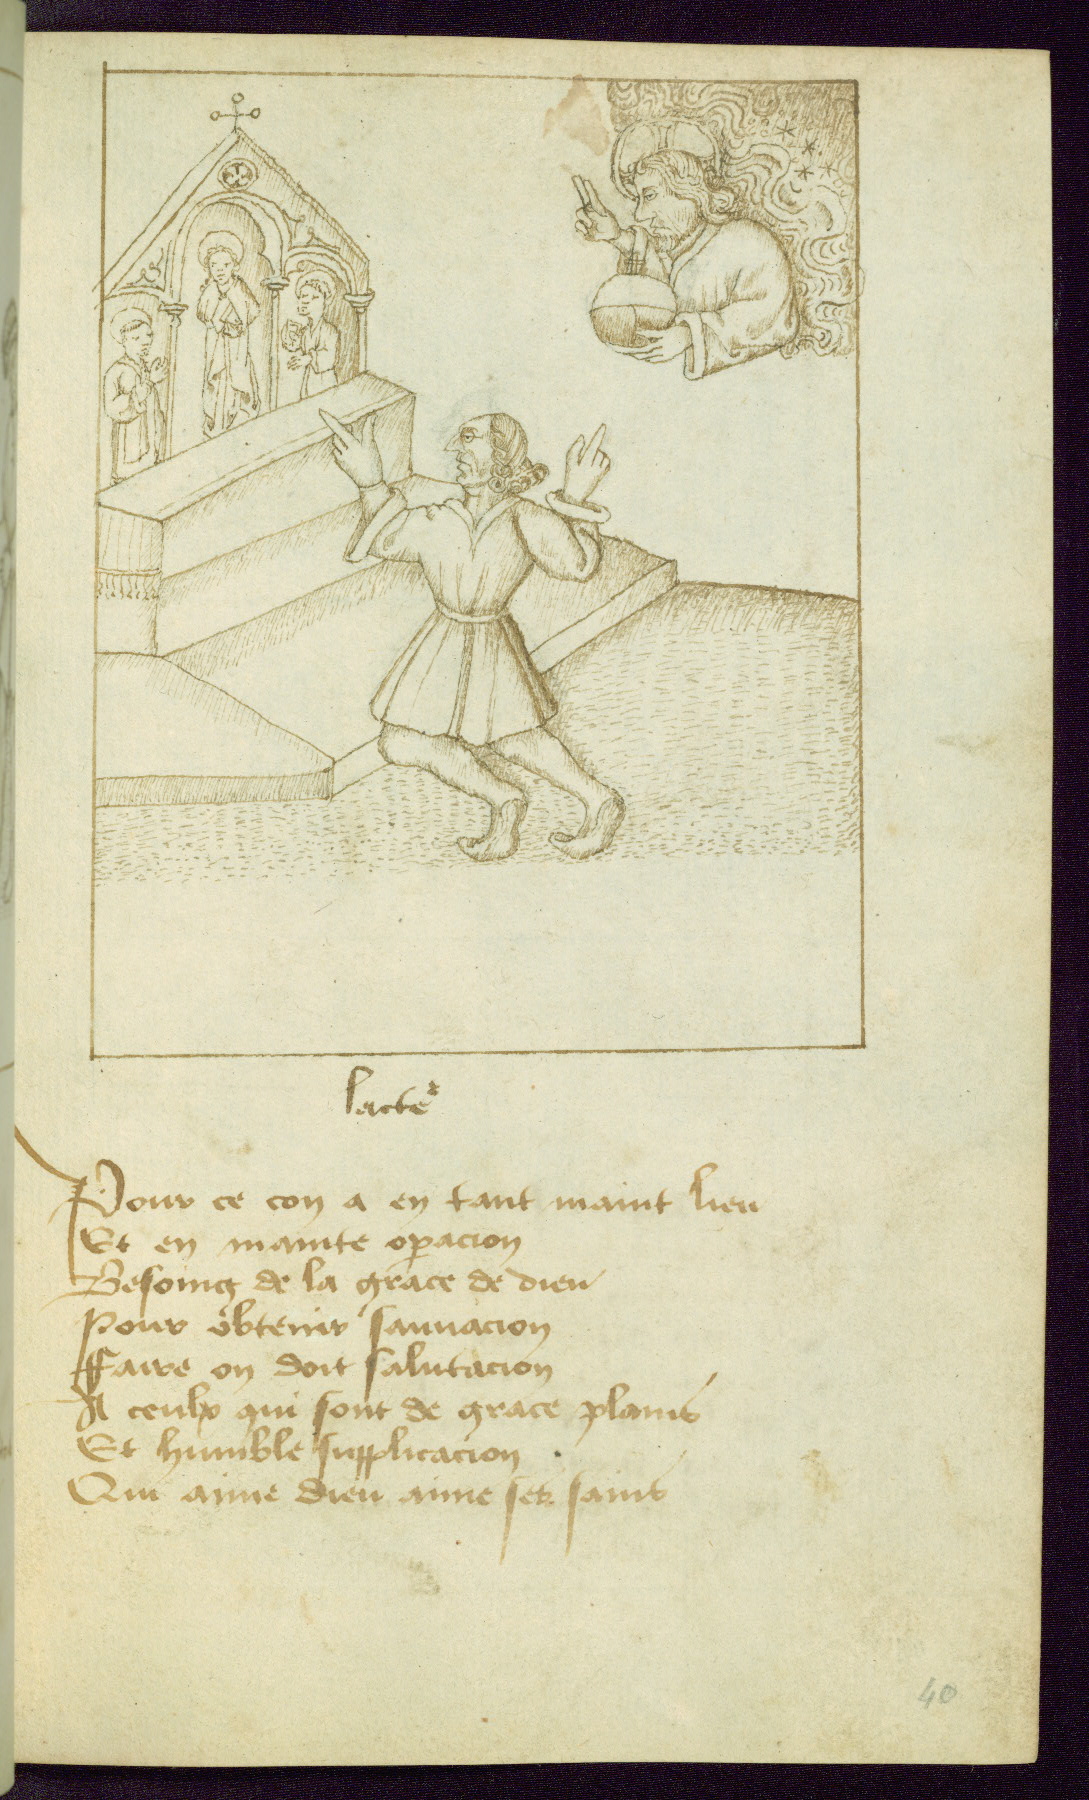 Pour ce con a en tant maint lieu
Et en mainte operacion
Besoing de la grace de dieu
Pour obtenir sauuacion
Ffaire on doit salutacion
A ceulx qui sont de grace plains
Et humble supplicacion
Qui aime dieu aime ses sains
40